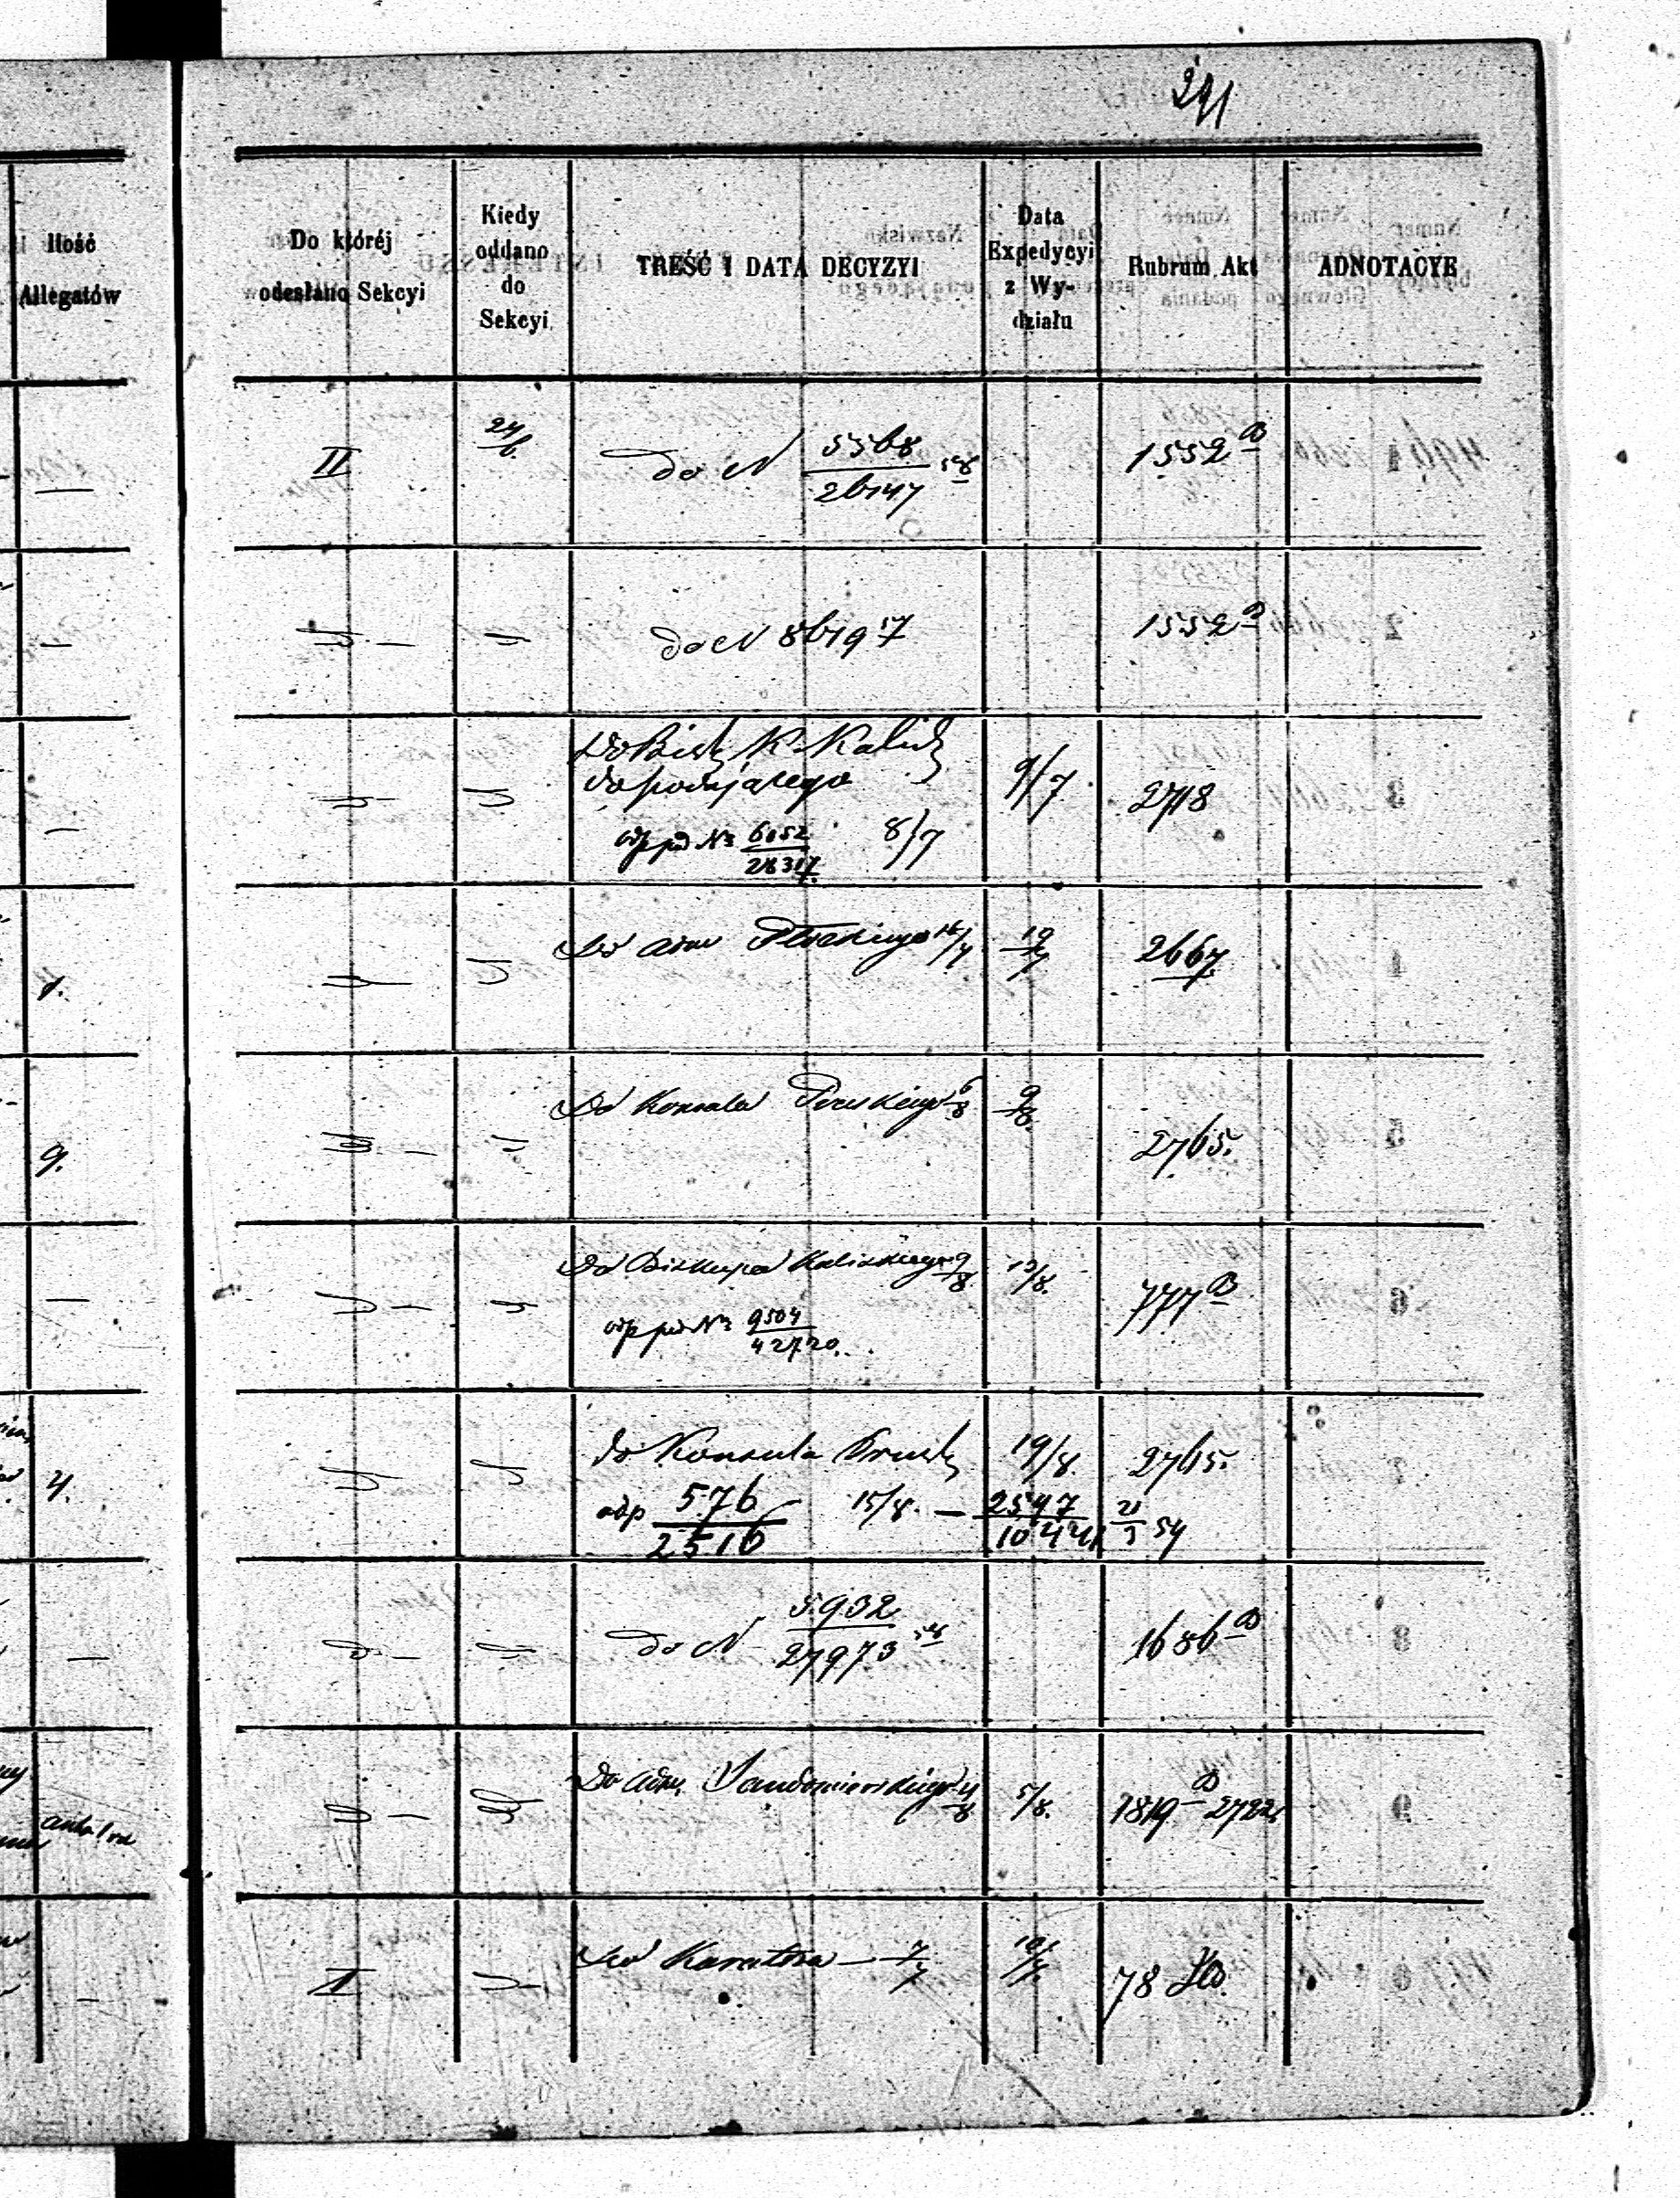 241
Ilość
Allegatów
Do któréj
odesłano Sekcyi
Kiedy
oddano
do
Sekcyi
TREŚĆ I DATA DECYZYI
Data
Expedycyi
z Wy-
działu
Rubrum Akt
ADNOTACYE
—
II
24/6
do N 5568/26147 58
1552 B
—
do N 8619 57
1552 B
—
Do Bisk K. Kalisk
do podającego
odp pod No 6052/28317. 8/7
9/7
2718
1.
Do Adm Płockiego 16/7
19/7
2667
9.
Do Konsula Pruskiego 6/8
9/8.
2765.
—
Do Biskupa Kaliskiego 9/8
odp pod No 9504/42720.
13/8.
777 B
4.
do Konsula Prusk
19/8.
2765.
odp 576/2516 15/8. — 2547/10441 21/3 54
—
do N 5932/27973 58
1686 B
Do Adm. Sandomierskiego 4/8
5/8.
1819 B 2722
—
II
Do Kuratora — 7/7
10/7.
78